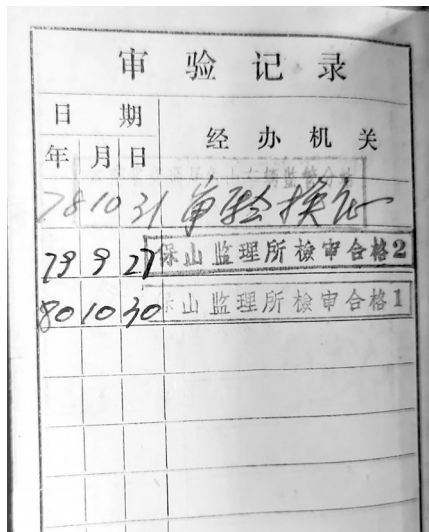 审验记录
日期 经办机关
年 月 日
78 10 31 审验换证
79 9 27 保山监理所檢审合格2
80 10 30 保山监理所檢审合格1